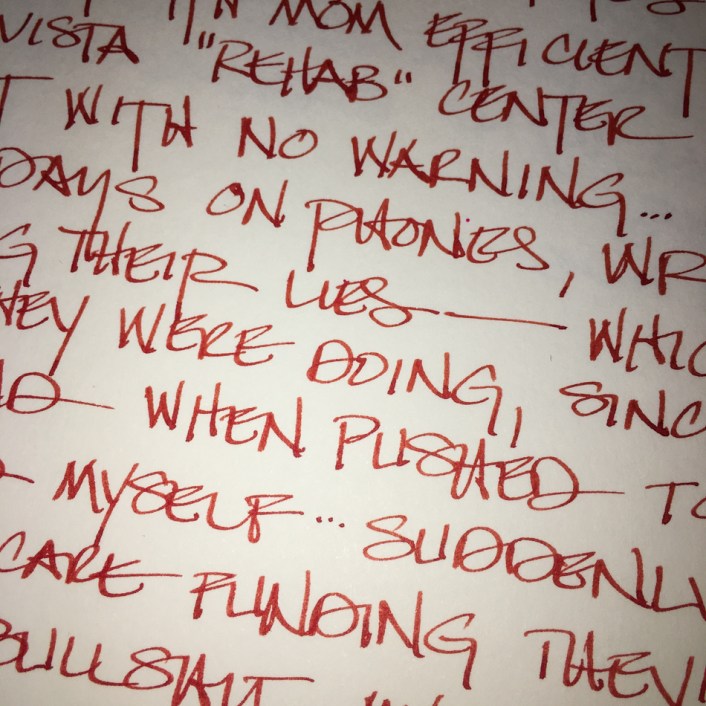 MOM EFFICIENT
VISTA "REHAB" CENTER
T WITH NO WARNING...
DAYS ON PHONES, WR
G THEIR LIES — WHIC
HEY WERE DOING, SINC
WHEN PUSHED TO
MYSELF... SUDDENLY
CARE FUNDING THEY
BULLSHIT